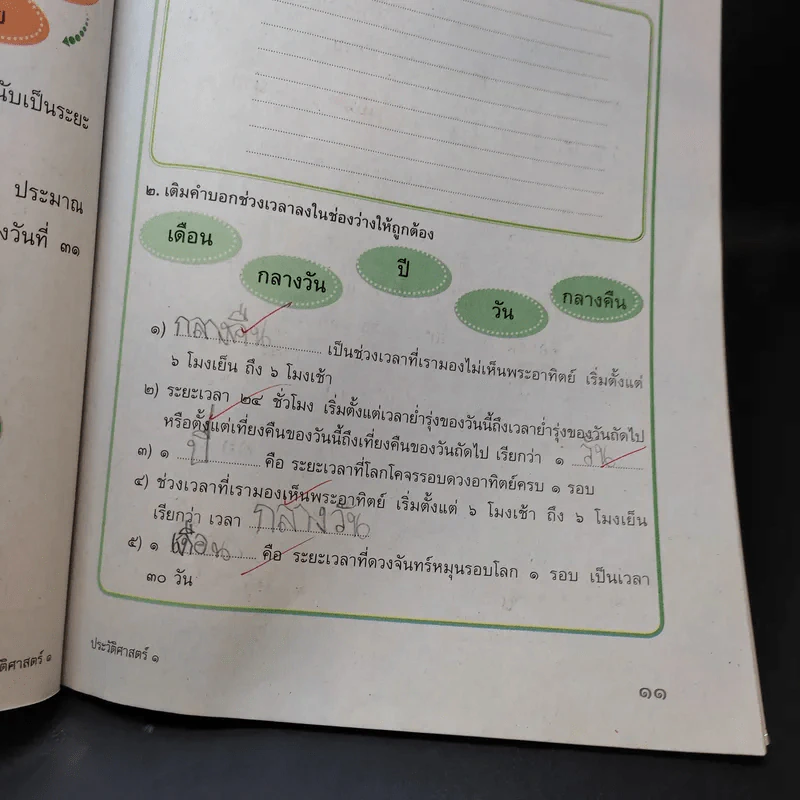 นับเป็นระยะ
ประมาณ
งวันที่ ๓๑
๒. เติมคำบอกช่วงเวลาลงในช่องว่างให้ถูกต้อง
เดือน
กลางวัน
ปี
วัน
กลางคืน
๑) กลางคืน เป็นช่วงเวลาที่เรามองไม่เห็นพระอาทิตย์ เริ่มตั้งแต่
๖ โมงเย็น ถึง ๖ โมงเช้า
๒) ระยะเวลา ๒๔ ชั่วโมง เริ่มตั้งแต่เวลาย่ำรุ่งของวันนี้ถึงเวลาย่ำรุ่งของวันถัดไป
หรือตั้งแต่เที่ยงคืนของวันนี้ถึงเที่ยงคืนของวันถัดไป เรียกว่า ๑ วัน
๓) ๑ ปี คือ ระยะเวลาที่โลกโคจรรอบดวงอาทิตย์ครบ ๑ รอบ
๔) ช่วงเวลาที่เรามองเห็นพระอาทิตย์ เริ่มตั้งแต่ ๖ โมงเช้า ถึง ๖ โมงเย็น
เรียกว่า เวลา กลางวัน
๕) ๑ เดือน คือ ระยะเวลาที่ดวงจันทร์หมุนรอบโลก ๑ รอบ เป็นเวลา
๓๐ วัน
ติศาสตร์ ๑
ประวัติศาสตร์ ๑
๑๑